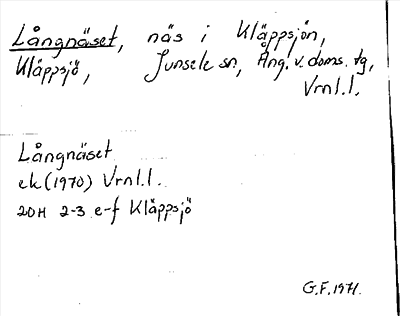 Långnäset, näs i Kläppsjön,
Kläppsjö, Junsele sn, Ång. v. doms. tg,
Vrnl.l.
Långnäset
ek (1970) Vrnl.l.
20H 2-3 e-f Kläppsjö
G.F. 1971.